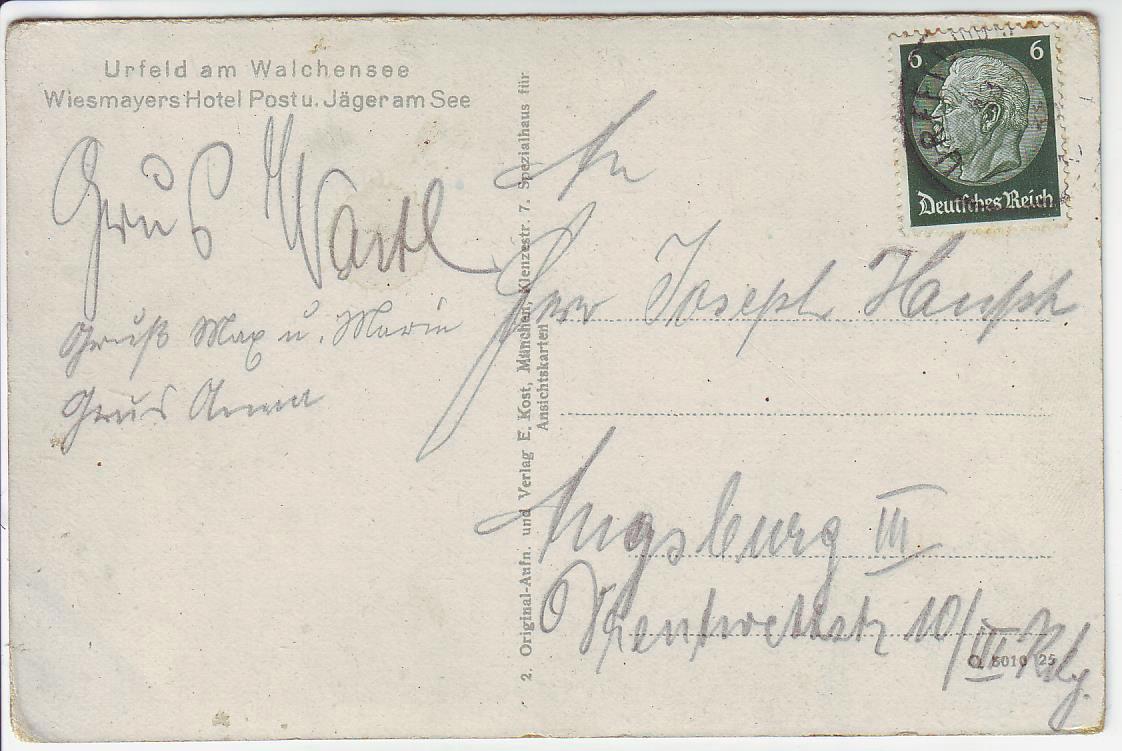 Urfeld am Walchensee
Wiesmayers Hotel Post u. Jäger am See
Grus Wartl
Gruß Max u. Marie
Grus Anna
2. Original-Aufn. und Verlag E. Kost, München, Klenzestr. 7. Spezialhaus für
Ansichtskarten
6 6
Deutsches Reich
URFELD
An
Herr Joseph
Augsburg III
10/III
O. 5010 25